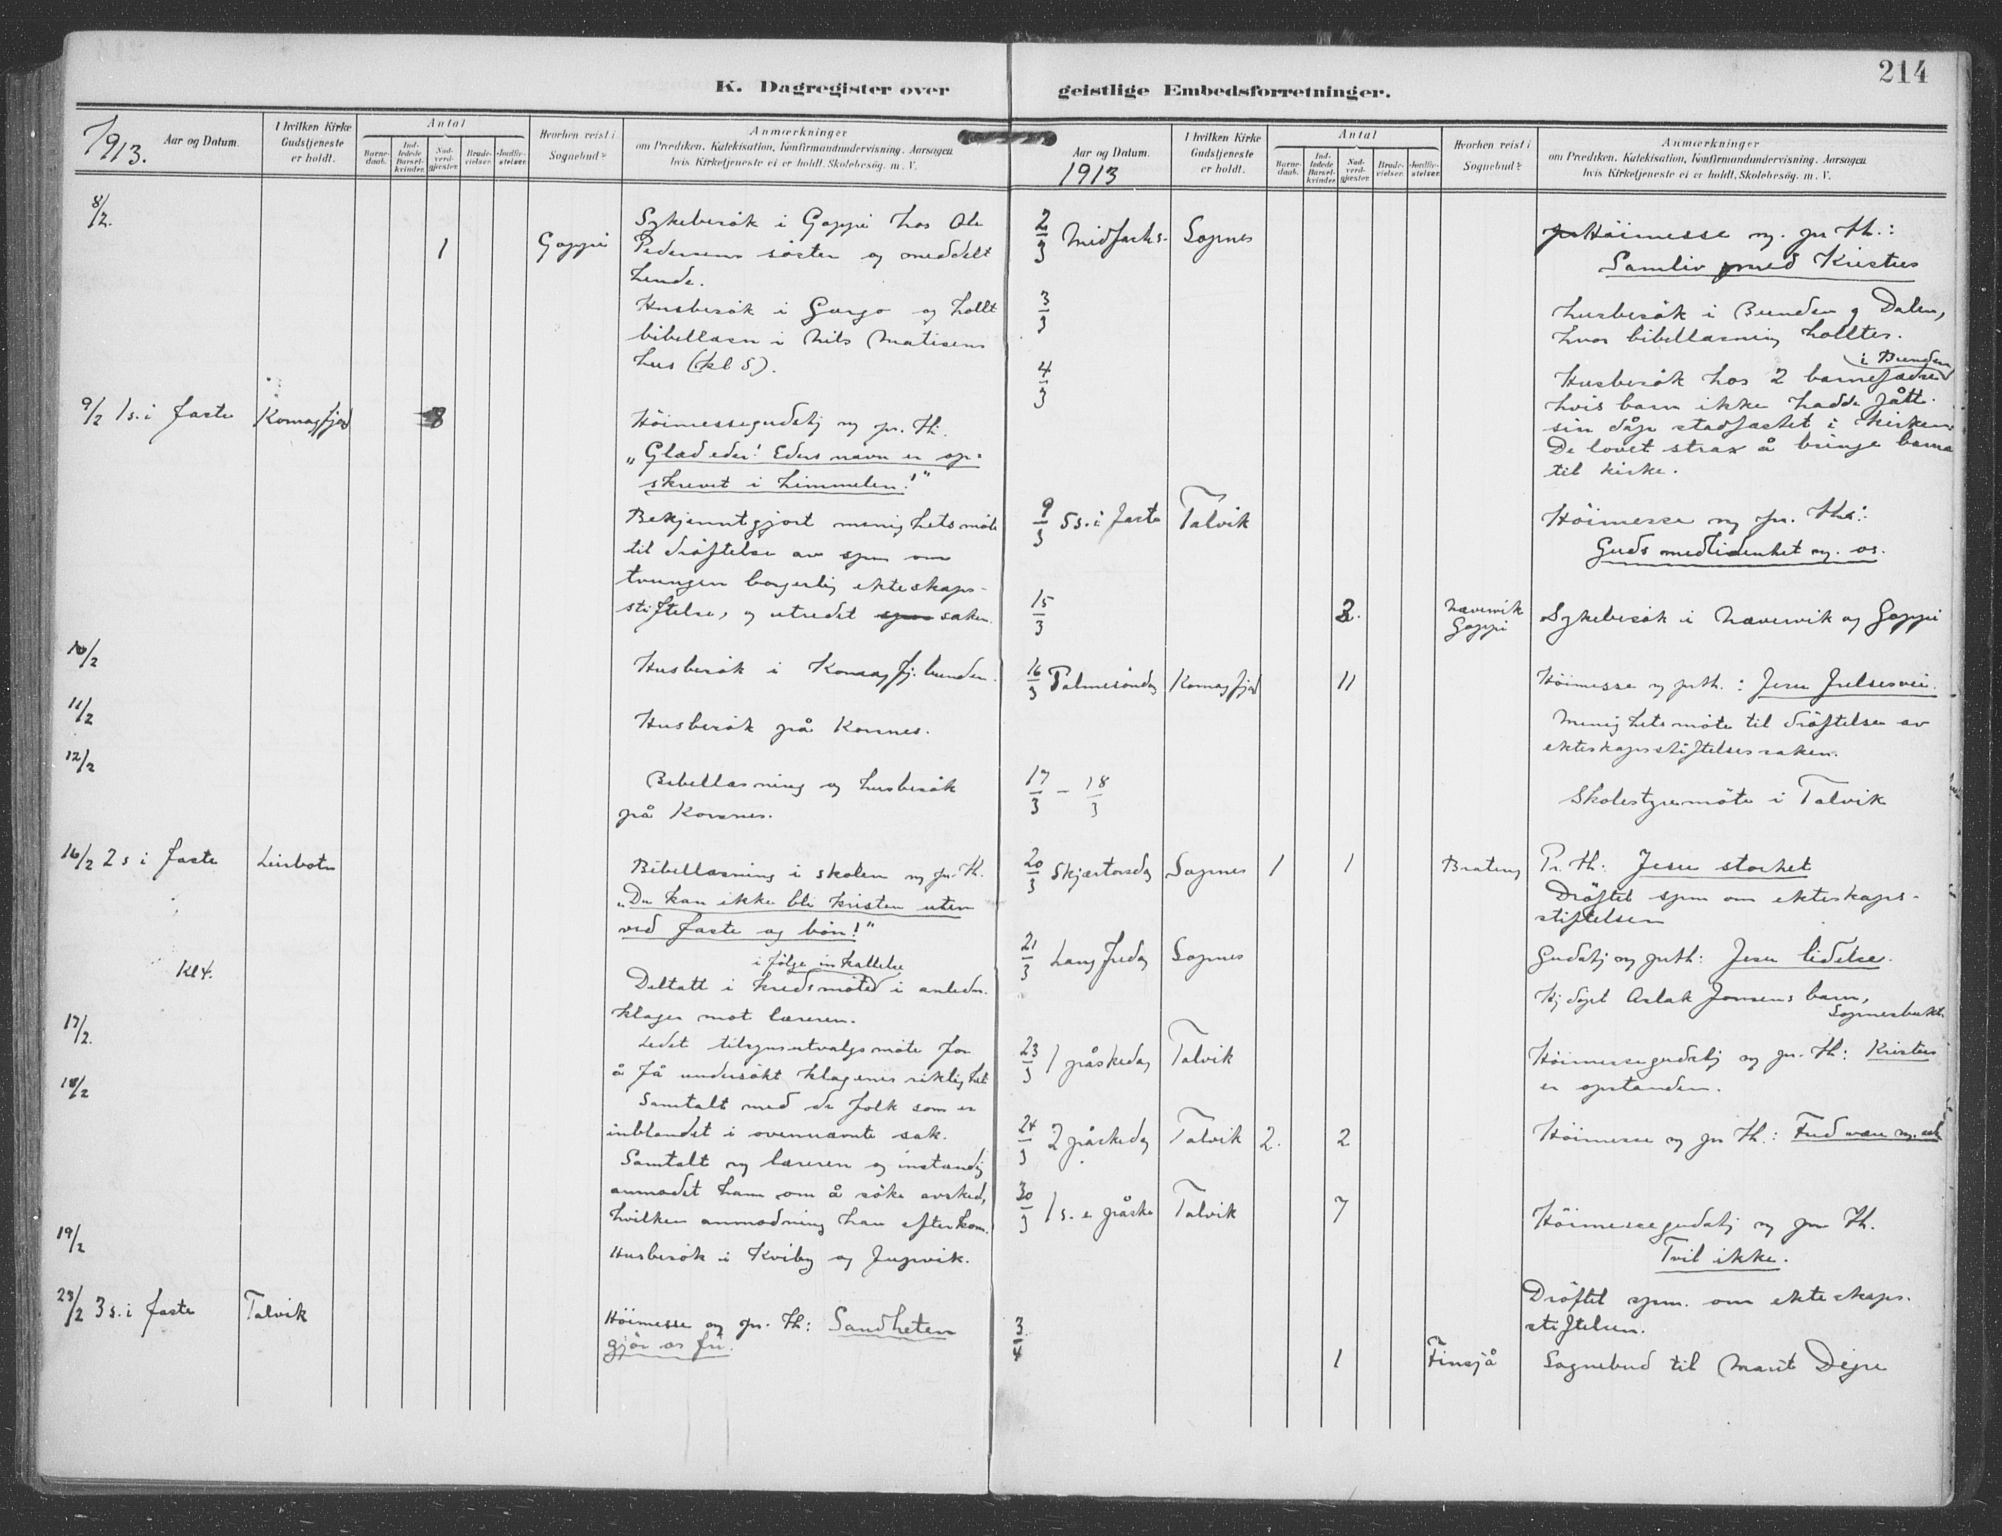 214
K. Dagregister over
geistlige Embedsforretninger.
1913.
Aar og Datum.
I hvilken Kirke Gudstjeneste er holdt.
Antal
Barnedaab.
Indledede Barselkvinder.
Nadverdgjester.
Brudevielser.
Jordfæstelser.
Hvorhen reist i Sognebud?
Anmærkninger
om Prædiken, Katekisation, Konfirmandundervisning, Aarsagen
hvis Kirketjeneste ei er holdt, Skolebesøg, m. V.
8/2.
1
Goppi
Sykebesøk i Goppi hos Ole
Pedersens søster og meddelt
hende.
Husbesøk i Gargo og hollt
bibellæsn i Nils Matisens
hus (kl 5).
9/2 1 s. i faste
Komagfjord
8
Höimessegudstj og pr. Th.
"Glæd eder! Eders navn er op-
skrevet i himmelen!"
Bekjenntgjort menighetsmöte
til dröftelse av spm om
tvungen borgerlig ekteskaps-
stiftelse, og utredet saken.
10/2
Husbesøk i Komagfj.bunden.
11/2
Husbesøk på Korsnes.
12/2
Bibellæsning og husbesøk
på Korsnes.
16/2 2 s i faste
Leirbotn
Bibellæsning i skolen og pr. Th.
"Du kan ikke bli kristen uten
ved faste og bön!"
Kl 4.
i følge innkallelse
Deltatt i kredsmöted i anledn.
klager mot læreren.
17/2.
Ledet tilsynsutvalgsmöte for
å få undersökt klagenes riktighet
18/2
Samtalt med de folk som er
inblandet i ovennævnte sak.
Samtalt og læreren og instændig
anmodet ham om å söke avsked,
hvilken anmodning han efterkom.
19/2
Husbesøk i Kviby og Jupvik.
23/2 3 s. i faste
Talvik
Höimesse og pr. Th: Sandheten
gjör os fri.
Aar og Datum.
1913
I hvilken Kirke Gudstjeneste er holdt.
Antal
Barnedaab.
Indledede Barselkvinder.
Nadverdgjester.
Brudevielser.
Jordfæstelser.
Hvorhen reist i Sognebud?
Anmærkninger
om Prædiken, Katekisation, Konfirmandundervisning, Aarsagen
hvis Kirketjeneste ei er holdt, Skolebesøg, m. V.
2/3 Midfasts.
Sopnes
Höimesse og pr Th.:
Samliv med Kristus
3/3
Husbesøk i Bunden og Dalen,
hvor bibellæsning holltes.
4/3
i Bunden
Husbesøk hos 2 barnefædre
hvis barn ikke hadde fått
sin dåp stadfæstet i kirken
De lovet strax å bringe barna
til kirke.
9/3 5 s. i faste
Talvik
Höimesse og pr. Th:
Guds medlidenhet og. os.
15/3
2.
Nævervik
Goppi
Sykebesøk i Nævervik og Goppi
16/3 Palmesöndag
Komagfjord
11
Höimesse og pr Th.: Jesu frelsesvei.
Menighetsmöte til dröftelse av
ekteskapsstiftelsessaken.
17/3 - 18/3
Skolestyremöte i Talvik
20/3 Skjærtorsdag
Sopnes
1
1
Brateng
Pr. Th: Jesu storhet
Dröftet spm om ekteskaps-
stiftelsen
21/3 Langfredag
Sopnes
Gudstj og pr Th: Jesu lidelse.
Hj.döpt Aslak Jonsens barn,
Sopnesbukt.
23/3 1 påskedag
Talvik
Höimessegudstj og pr. Th: Kristus
er opstanden.
24/3 2 påskedag
Talvik
2.
2
Höimesse og pr Th.: Fred være
30/3 1 s. e. påske
Talvik
7
Höimessegudstj og pr Th.
Tvil ikke.
Dröftet spm. om ekteskaps-
stiftelsen.
3/4
1
Finsjå
Sognebud til Marit